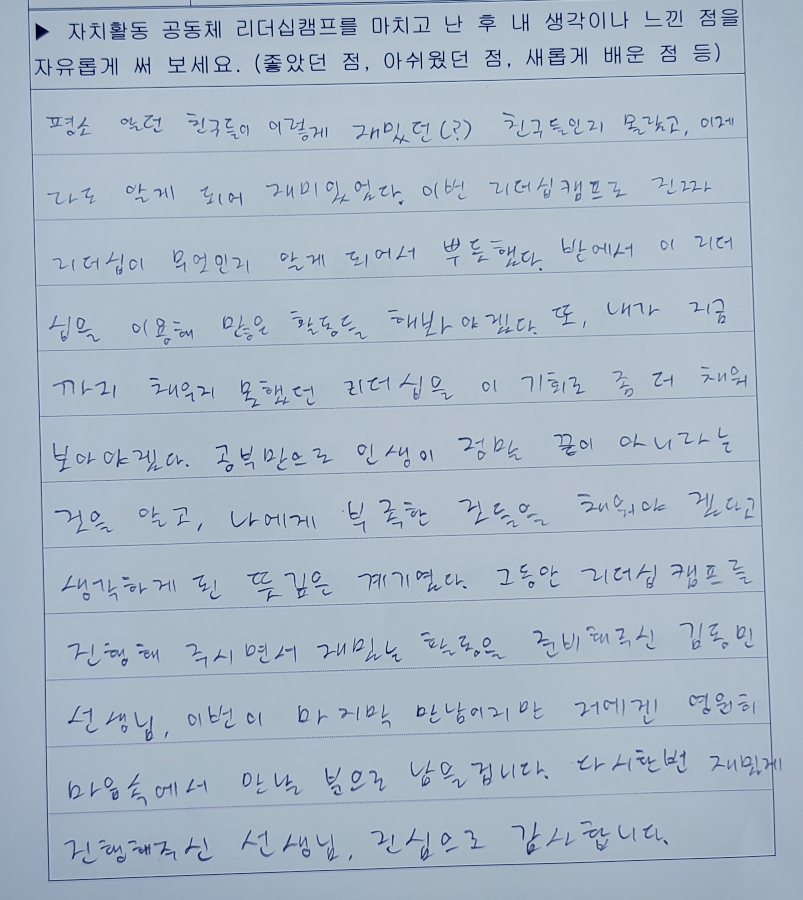 ▶ 자치활동 공동체 리더십캠프를 마치고 난 후 내 생각이나 느낀 점을
자유롭게 써 보세요. (좋았던 점, 아쉬웠던 점, 새롭게 배운 점 등)
평소 알던 친구들이 이렇게 재밌던(?) 친구들인지 몰랐고, 이제
라도 알게 되어 재미있었다. 이번 리더십캠프로 진짜
리더십이 무엇인지 알게 되어서 뿌듯했다. 밖에서 이 리더
십을 이용해 많은 활동들 해봐야겠다. 또, 내가 지금
까지 채우지 못했던 리더십을 이 기회로 좀 더 채워
보아야겠다. 공부만으로 인생이 정말 끝이 아니라는
것을 알고, 나에게 부족한 것들을 채워야 겠다고
생각하게 된 뜻깊은 계기였다. 그동안 리더십 캠프를
진행해 주시면서 재밌는 활동을 준비해주신 김동민
선생님, 이번이 마지막 만남이지만 저에겐 영원히
마음속에서 만날 분으로 남을겁니다. 다시한번 재밌게
진행해주신 선생님, 진심으로 감사합니다.